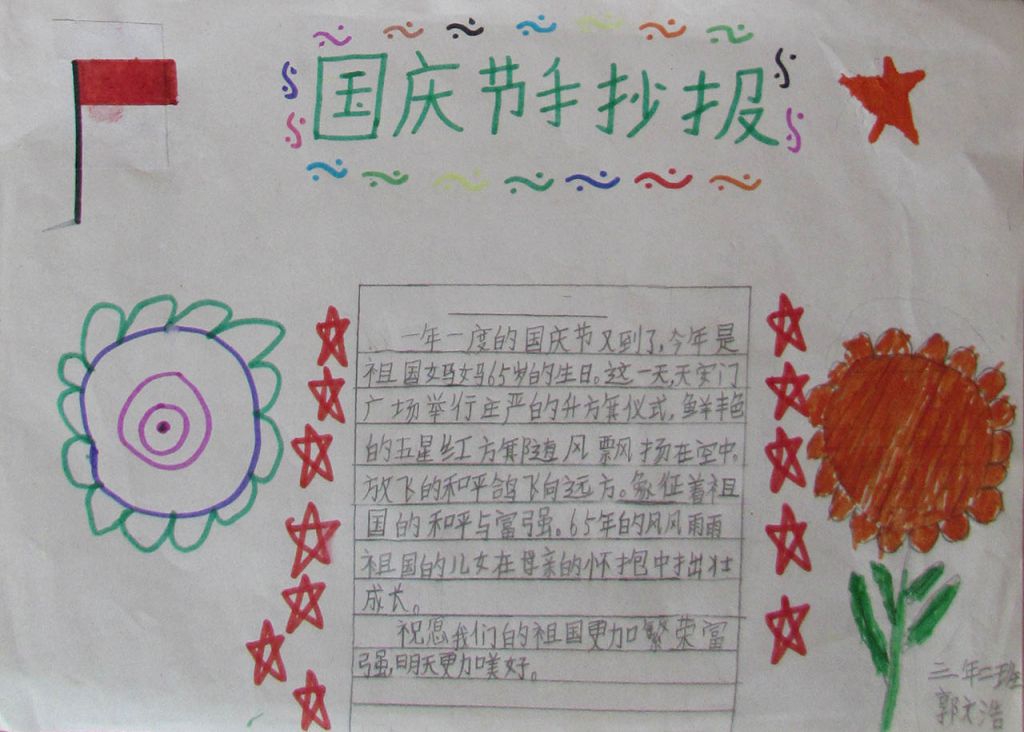 国庆节手抄报
一年一度的国庆节又到了,今年是
祖国妈妈65岁的生日。这一天,天安门
广场举行庄严的升旗仪式,鲜艳
的五星红旗随风飘扬在空中,
放飞的和平鸽飞向远方。象征着祖
国的和平与富强。65年的风风雨雨
祖国的儿女在母亲的怀抱中拙壮
成长。
祝愿我们的祖国更加繁荣富
强,明天更加美好。
三年二班
郭文浩